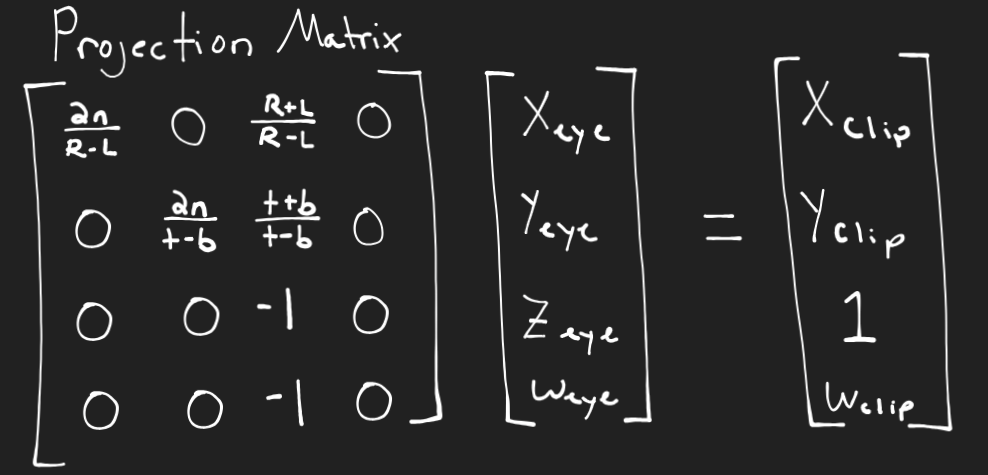 Projection Matrix
2n/R-L 0 R+L/R-L 0
0 2n/t-b t+b/t-b 0
0 0 -1 0
0 0 -1 0
Xeye
Yeye
Zeye
Weye
=
Xclip
Yclip
1
Wclip